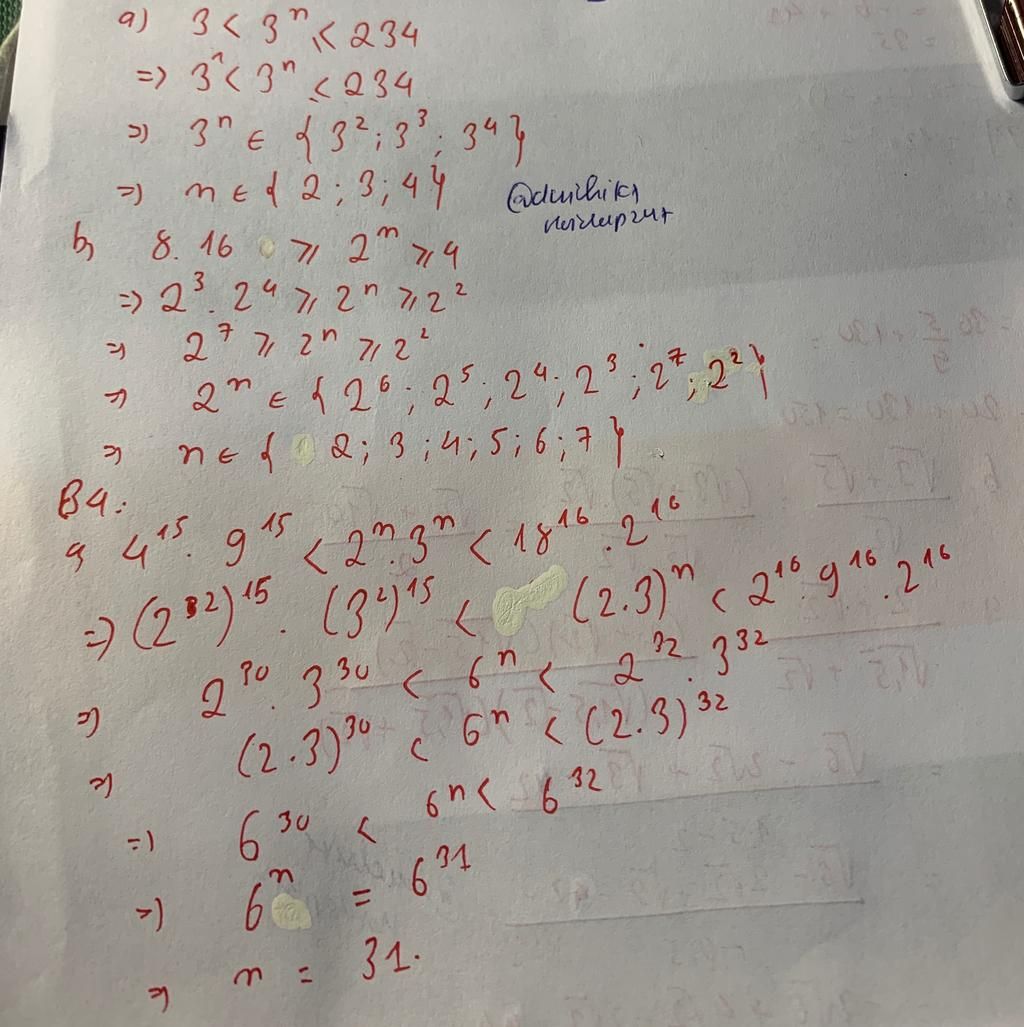 a) 3 < 3ⁿ ≤ 234
=) 3¹ < 3ⁿ ≤ 234
=) 3ⁿ ∈ { 3²; 3³; 3⁴ }
=) n ∈ { 2; 3; 4 }
b) 8. 16 ⩾ 2ⁿ ⩾ 4
=) 2³. 2⁴ ⩾ 2ⁿ ⩾ 2²
=) 2⁷ ⩾ 2ⁿ ⩾ 2²
=) 2ⁿ ∈ { 2⁶; 2⁵; 2⁴; 2³; 2⁷; 2² }
=) n ∈ { 2; 3; 4; 5; 6; 7 }
B4:
a) 4¹⁵. 9¹⁵ < 2ⁿ. 3ⁿ < 18¹⁶. 2¹⁶
=) (2²)¹⁵. (3²)¹⁵ < (2.3)ⁿ < 2¹⁶. 9¹⁶. 2¹⁶
=) 2³⁰. 3³⁰ < 6ⁿ < 2³². 3³²
=) (2.3)³⁰ < 6ⁿ < (2.3)³²
=) 6³⁰ < 6ⁿ < 6³²
=) 6ⁿ = 6³¹
=) n = 31.